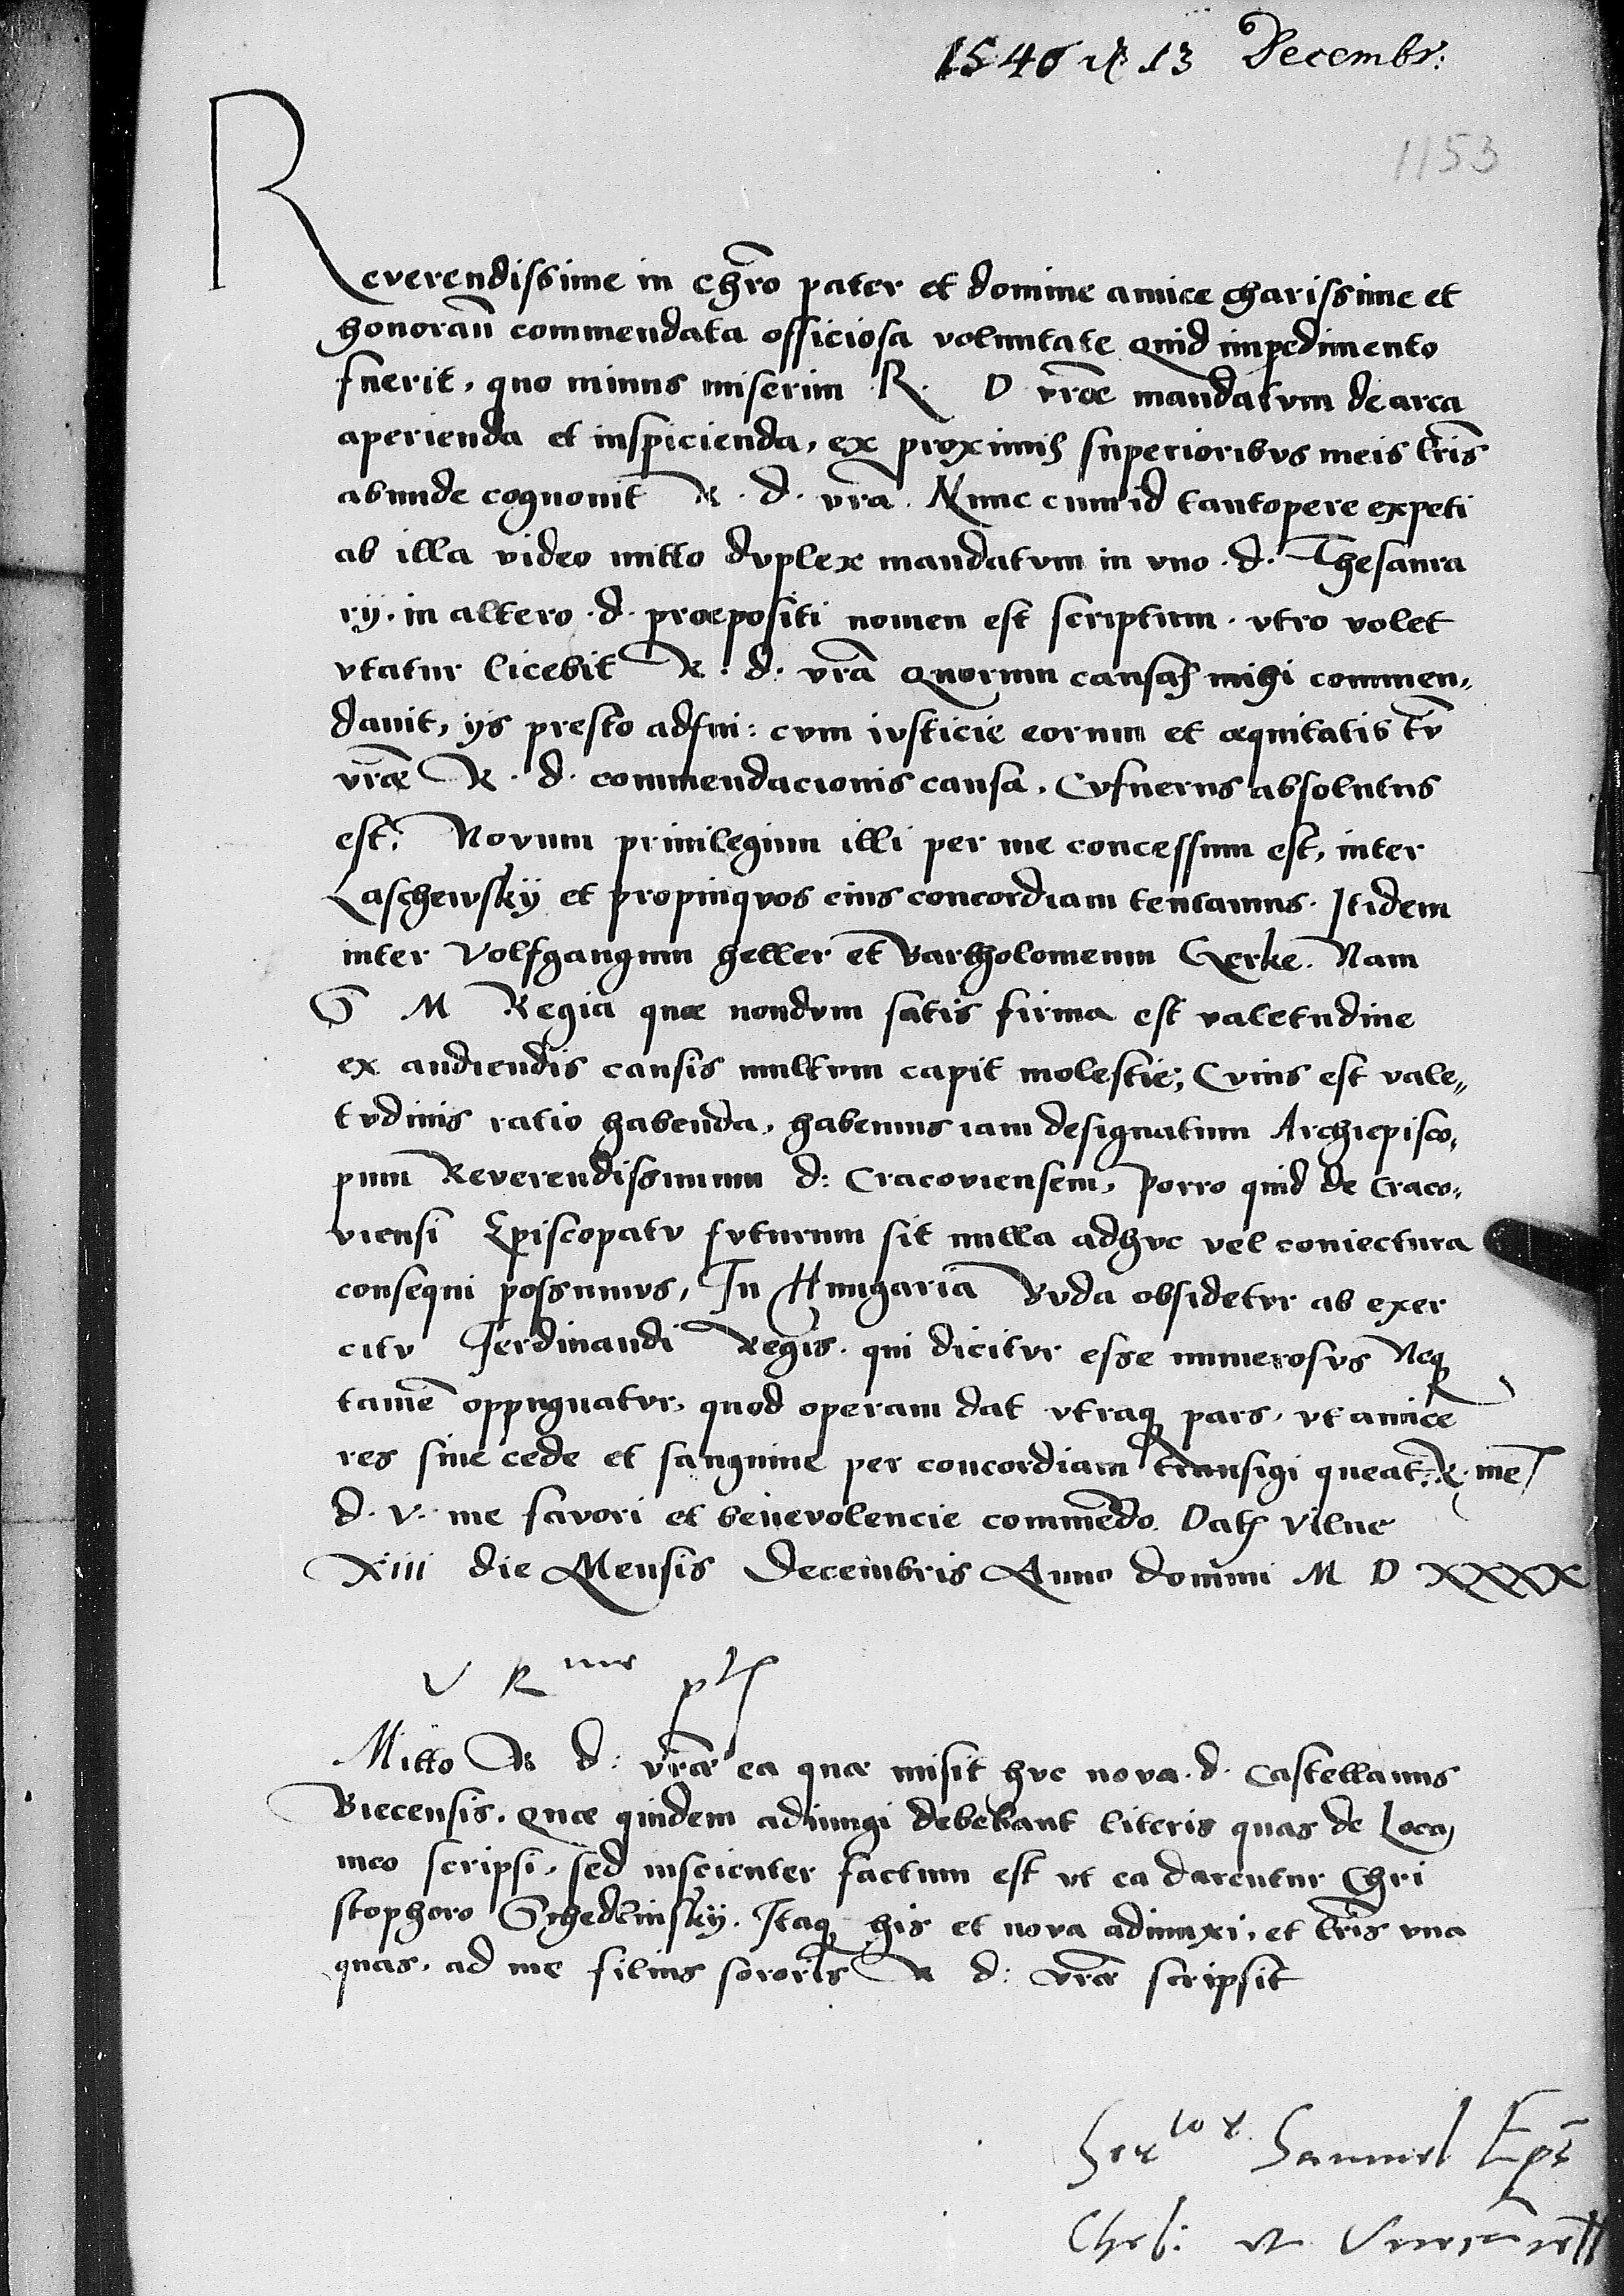 1540 d 13 Decembr:
1153
Reverendissime in chro pater et domine amice charissime et
honoran commendata officiosa voluntate quid impedimento
fuerit, quo minus miserim R. D vrae mandatum de arca
aperienda et inspicienda, ex proximis superioribus meis lris
abunde cognouit R. d. vra. Nunc cum id tantopere expeti
ab illa video mitto duplex mandatum in vno .d. Thesaura
rij. in altero .d. praepositi nomen est scriptum. vtro volet
vtatur licebit R. d. vra Quorum causas mihi commen„
dauit, ijs presto adfui: cum iusticie eorum et aequitatis tu
vrae R. d. commendacionis causa. Cusnerus absolutus
est. Novum priuilegium illi per me concessum est, inter
Laschewsky et propinquos eius concordiam tentamus. Itidem
inter Volfgangum heller et Bartholomeum Gerke. Nam
S M Regia quae nondum satis firma est valetudine
ex audiendis causis multum capit molestie; Cuius est vale„
tudinis ratio habenda, habemus iam designatum Archiepisco„
pum Reverendissimum d: Cracoviensem, Porro quid de Craco„
viensi Episcopatu futurum sit nulla adhuc vel coniectura
consequi possumus, In Hungaria Buda obsidetur ab exer
citu Ferdinandi Regis. qui dicitur esse numerosus Neq
tame oppugnatur, quod operam dat vtraq pars, vt amice
res sine cede et sanguine per concordiam transigi queat. R. me
d. v. me favori et benevolencie commedo. Dat Vilne
Xiii die Mensis Decembris Anno domini M D XXXX
V R me p
Mitto R d: vrae ea quae misit huc nova .d. Castellanus
Biecensis. Quae quidem adiungi debebant literis quas de Loca
meo scripsi, sed inscienter factum est vt ea darentur Chri
stophoro Schedlinsky. Itaq his et nova adiunxi, et lris vna
quas. ad me filius sororis R d: vrae scripsit
Samuel Eps